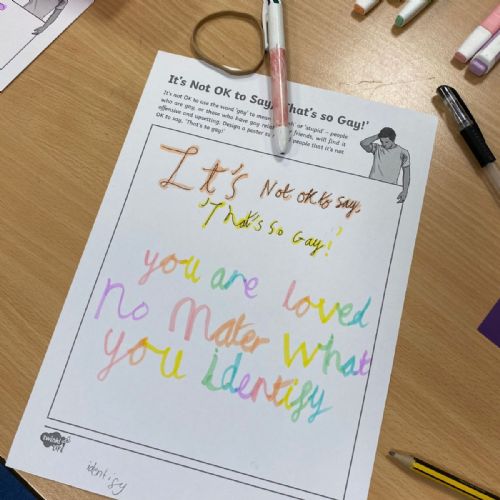 It's Not OK to Say, 'That's so Gay!'
It's not OK to use the word 'gay' to mean or 'stupid' – people
who are gay, or those who have gay friends, will find it
offensive and upsetting. Design a poster to people that it's not
OK to say, 'That's so gay!'
It's Not OK to say,
'That's so Gay!'
you are loved
no mater what
you identify
twinkl
identify